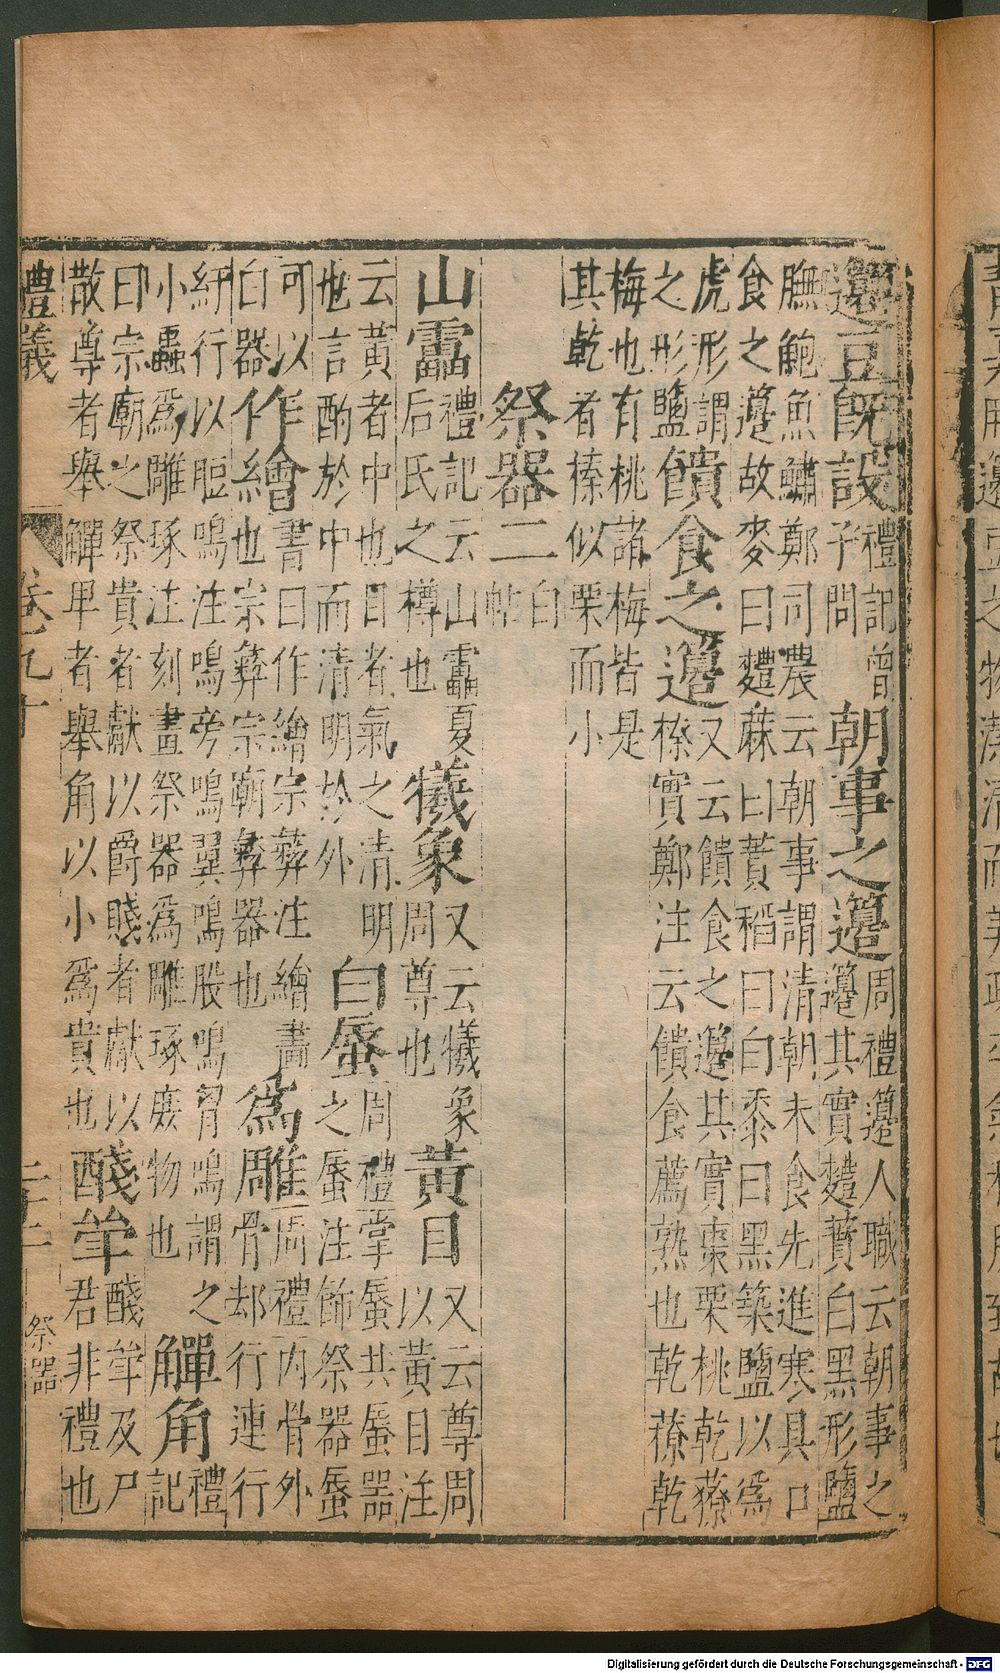 籩豆既設禮記曾子問朝事之籩周禮籩人職云朝事之籩其實麷蕡白黑形鹽
膴鮑魚鱐鄭司農云朝事謂清朝未食先進寒具口
食之籩故麥曰麷麻曰蕡稻曰白黍曰黑築鹽以為
虎形謂之形鹽饋食之籩又云饋食之籩其實棗栗桃乾䕩榛實鄭注云饋食薦熟也乾䕩乾
梅也有桃諸梅皆是
其乾者榛似栗而小
祭器二白帖
山罍禮記云山罍夏后氏之樽也犧象又云犧象周尊也黄目又云尊周以黄目注
云黄者中也目者氣之清明也言酌於中而清明於外白蜃周禮掌蜃共蜃器之蜃注飾祭器蜃
可以白器作繪書曰作繪宗彝注繪畫也宗彝宗廟彝器也為雕周禮内骨外骨却行連行
紆行以脰鳴注鳴旁鳴翼鳴股鳴胷鳴謂之小蟲為雕琢注刻畫祭器為雕琢庻物也觶角禮記
曰宗廟之祭貴者獻以爵賤者獻以散尊者舉觶卑者舉角以小為貴也醆斝醆斝及尸君非禮也
禮義 卷九十 祭器
Digitalisierung gefördert durch die Deutsche Forschungsgemeinschaft - DFG